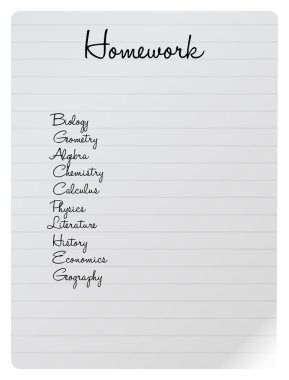 Homework
Biology
Geometry
Algebra
Chemistry
Calculus
Physics
Literature
History
Economics
Geography